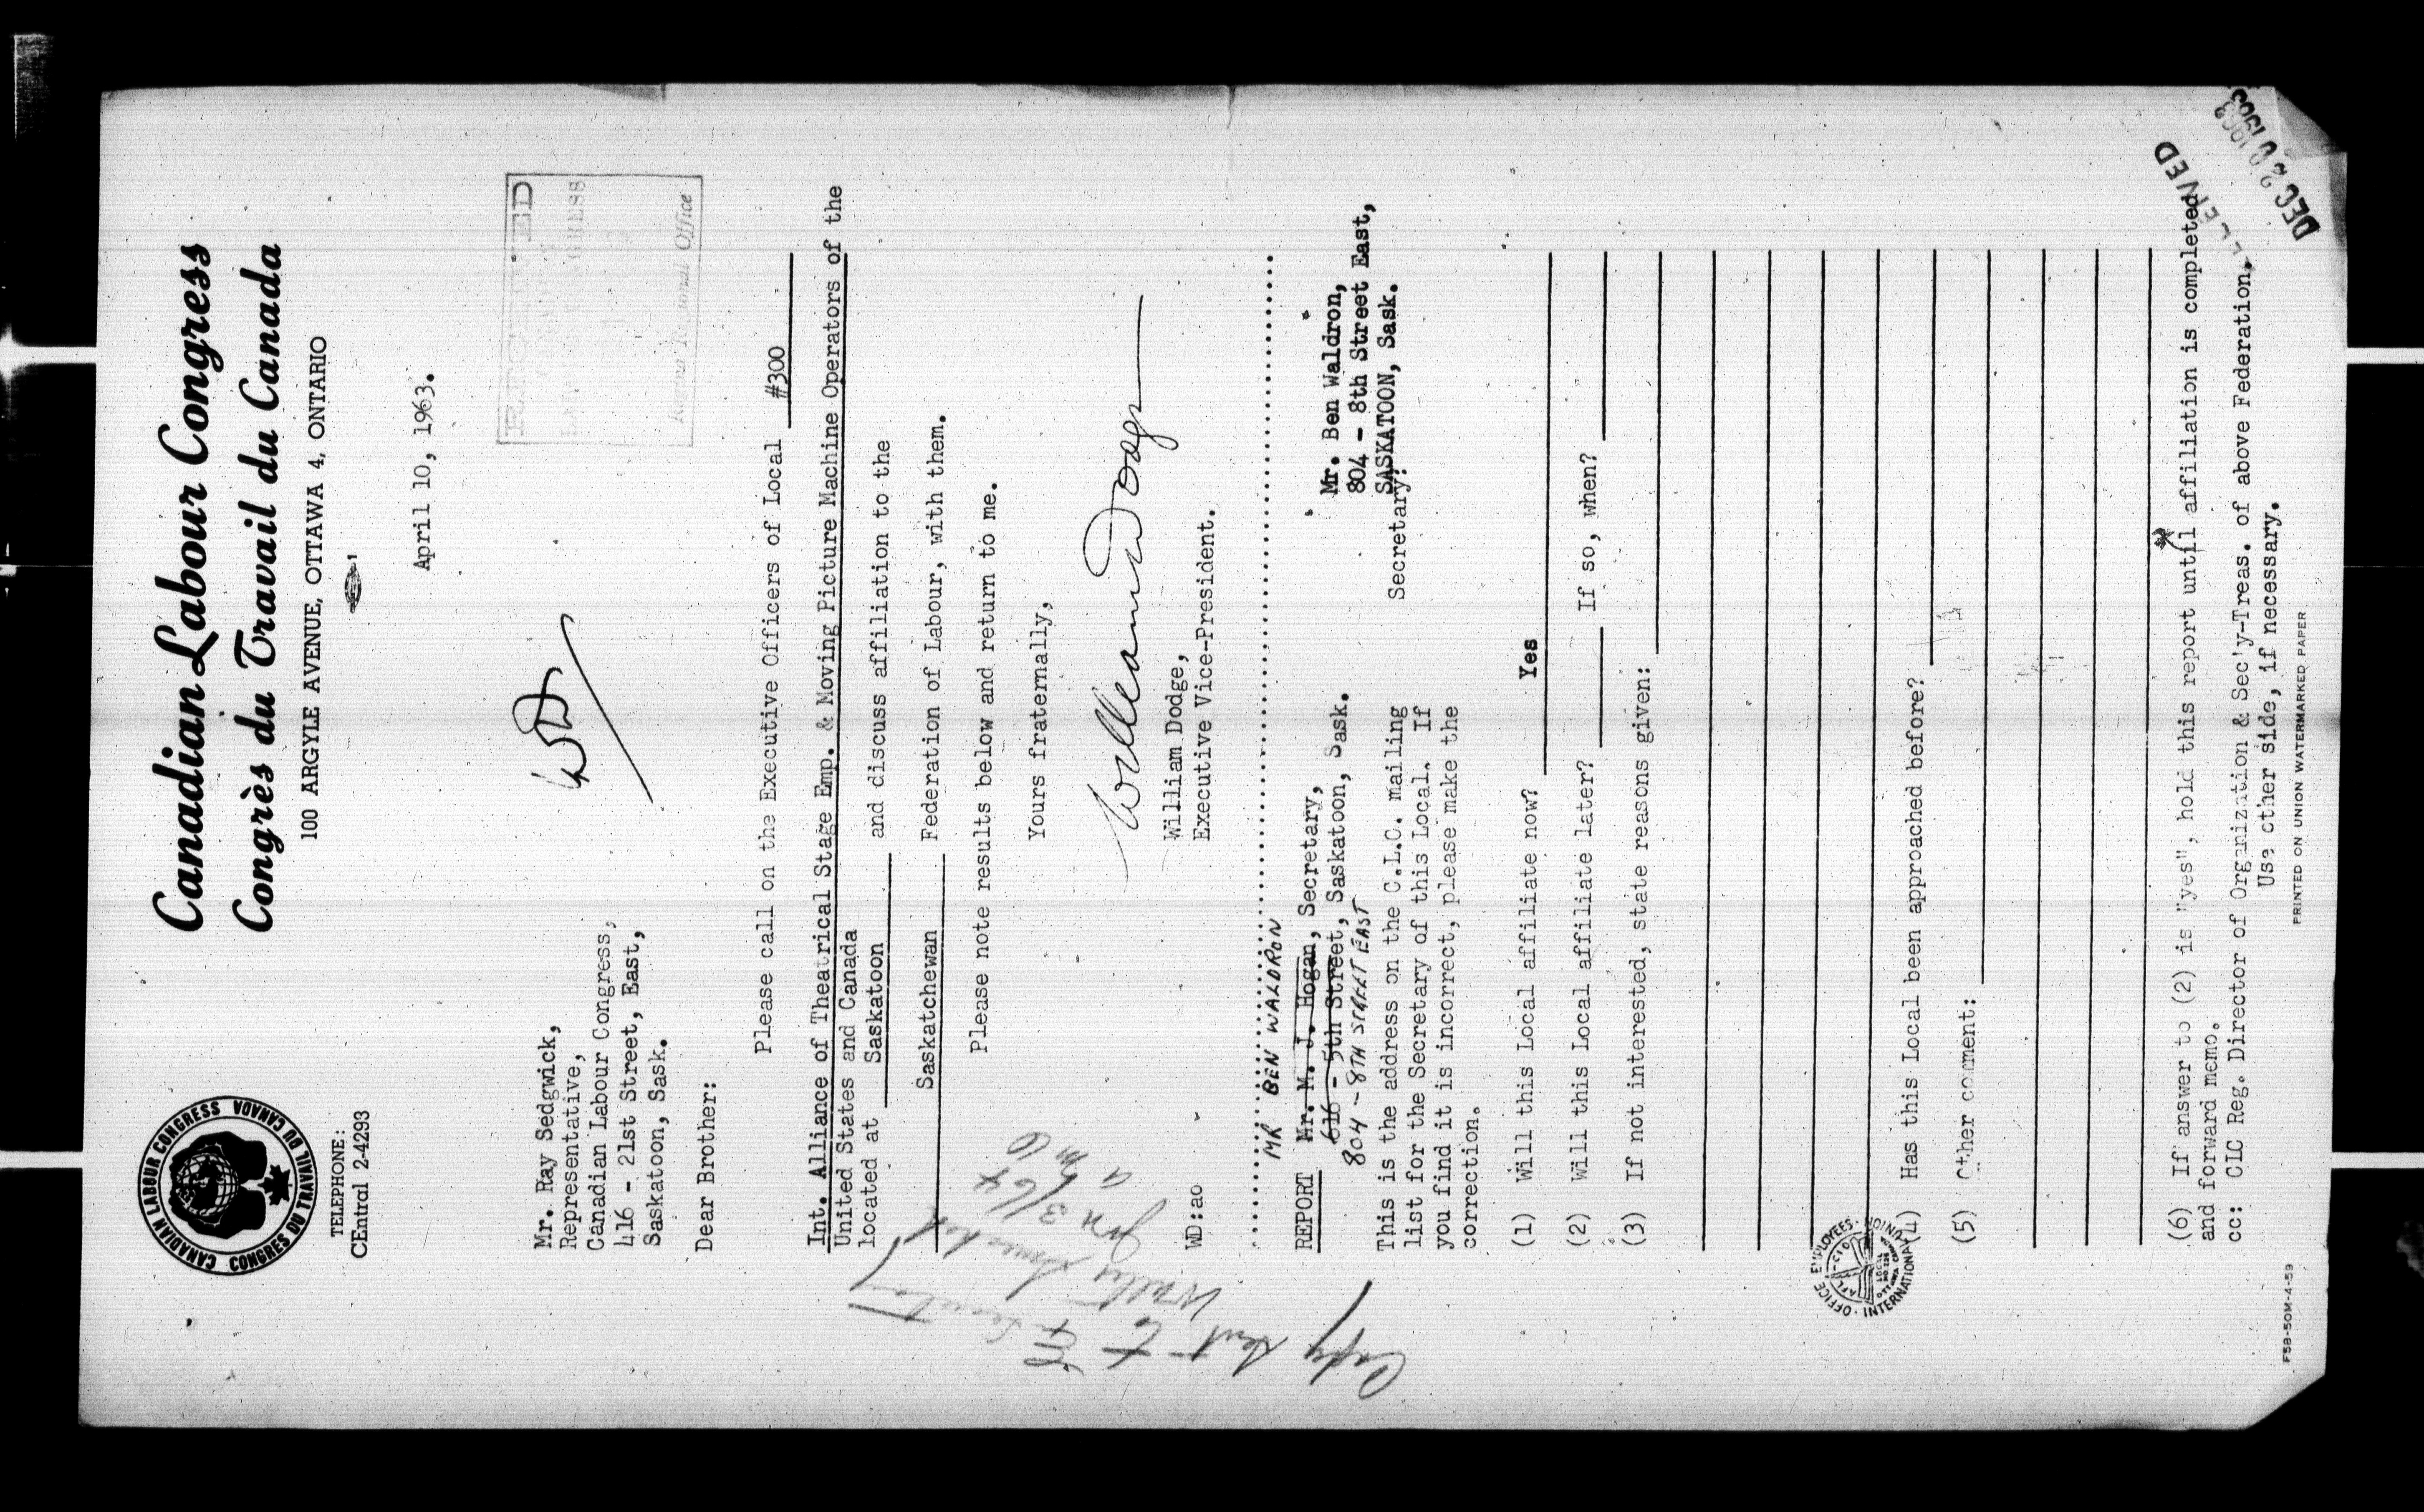 Canadian Labour Congress
Congrès du Travail du Canada
100 ARGYLE AVENUE, OTTAWA 4, ONTARIO
CANADIAN LABOUR CONGRESS
CONGRES DU TRAVAIL DU CANADA
TELEPHONE:
CEntral 2-4293
April 10, 1963.
RECEIVED
LABOUR CONGRESS
Regina Regional Office
Mr. Ray Sedgwick,
Representative,
Canadian Labour Congress,
416 - 21st Street, East,
Saskatoon, Sask.
Dear Brother:
Please call on the Executive Officers of Local #300
Int. Alliance of Theatrical Stage Emp. & Moving Picture Machine Operators of the
United States and Canada
located at Saskatoon and discuss affiliation to the
Saskatchewan Federation of Labour, with them.
Please note results below and return to me.
Yours fraternally,
William Dodge
William Dodge,
Executive Vice-President.
WD:ao
Copy sent to
Jan 3/64
MR BEN WALDRON
REPORT Mr. M. J. Hogan, Secretary,
616 - 5th Street, Saskatoon, Sask.
804 - 8TH STREET EAST
Mr. Ben Waldron,
804 - 8th Street East,
SASKATOON, Sask.
Secretary:
This is the address on the C.L.C. mailing
list for the Secretary of this Local. If
you find it is incorrect, please make the
correction.
(1) Will this Local affiliate now? Yes
(2) Will this Local affiliate later? If so, when?
(3) If not interested, state reasons given:
(4) Has this Local been approached before?
(5) Other comment:
OFFICE EMPLOYEES INTERNATIONAL UNION
(6) If answer to (2) is "yes", hold this report until affiliation is completed
and forward memo.
cc: CLC Reg. Director of Organization & Sec'y-Treas. of above Federation.
Use other side, if necessary.
PRINTED ON UNION WATERMARKED PAPER
F58-50M-4-59
RECEIVED
DEC 20 1963